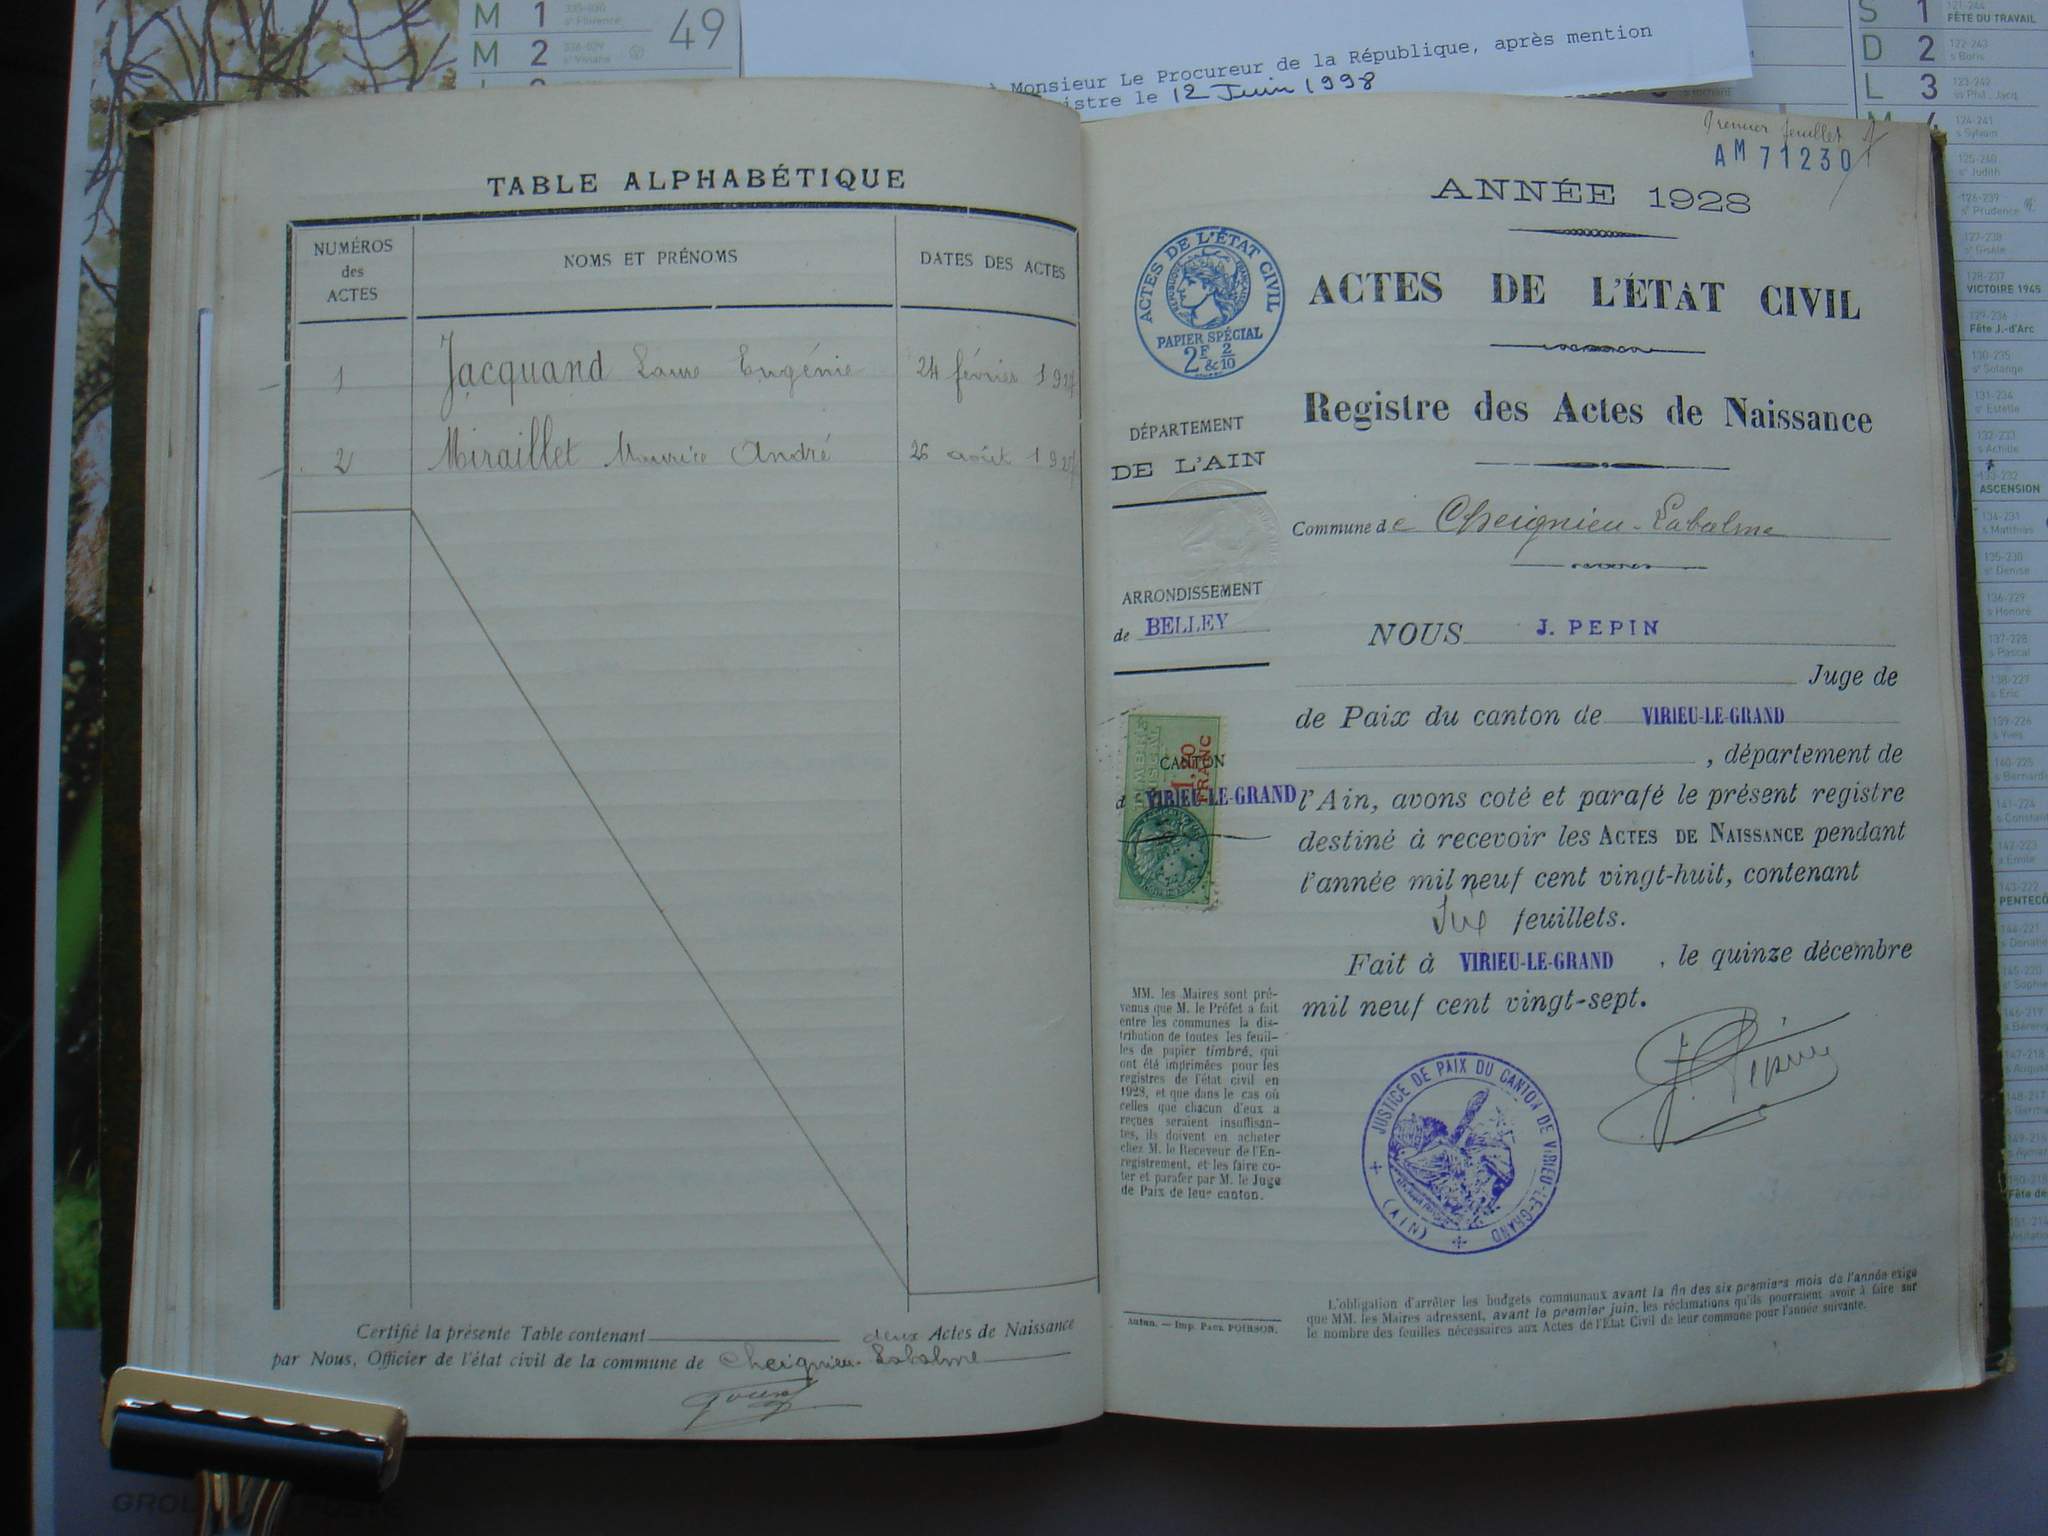 M 1 335-030 sᵉ Florence
M 2 336-029 sᵉ Viviane
49
à Monsieur Le Procureur de la République, après mention
istre le 12 Juin 1998
S 1 121-244 FÊTE DU TRAVAIL
D 2 122-243 s Boris
L 3 123-242 ss Phil., Jacq.
124-241 s Sylvain
125-240 sᵉ Judith
126-239 sᵉ Prudence
127-238 sᵉ Gisèle
128-237 VICTOIRE 1945
129-236 Fête J.-d'Arc
130-235 sᵉ Solange
131-234 sᵉ Estelle
132-233 s Achille
133-232 ASCENSION
134-231 s Matthias
135-230 sᵉ Denise
136-229 s Honoré
137-228 s Pascal
138-227 s Eric
139-226 s Yves
140-225 s Bernardi
141-224 s Constant
142-223 s Emile
143-222 PENTECÔ
144-221 s Donatie
145-220 sᵉ Sophie
146-219 s Béreng
147-218 s August
148-217 s Germa
149-216 s Aymar
150-215 Fête de
151-214 Visitatio
TABLE ALPHABÉTIQUE
NUMÉROS des ACTES
NOMS ET PRÉNOMS
DATES DES ACTES
1 Jacquand Laure Eugénie 24 février 1927
2 Miraillet Maurice André 26 août 1927
Certifié la présente Table contenant deux Actes de Naissance
par Nous, Officier de l'état civil de la commune de Cheignieu-Labalme
premier feuillet
AM 71230
ANNÉE 1928
ACTES DE L'ÉTAT CIVIL
RÉPUBLIQUE FRANÇAISE
PAPIER SPÉCIAL
2F & 2/10
ACTES DE L'ÉTAT CIVIL
Registre des Actes de Naissance
DÉPARTEMENT
DE L'AIN
Commune de Cheignieu-Labalme
ARRONDISSEMENT
de BELLEY
NOUS J. PEPIN
Juge de
de Paix du canton de VIRIEU-LE-GRAND
, département de
l'Ain, avons coté et parafé le présent registre
destiné à recevoir les ACTES DE NAISSANCE pendant
l'année mil neuf cent vingt-huit, contenant
six feuillets.
Fait à VIRIEU-LE-GRAND, le quinze décembre
mil neuf cent vingt-sept.
J. Pépin
TIMBRE FISCAL
FRANC
CANTON
d VIRIEU-LE-GRAND
MM. les Maires sont pré-
venus que M. le Préfet a fait
entre les communes la dis-
tribution de toutes les feuil-
les de papier timbré, qui
ont été imprimées pour les
registres de l'état civil en
1928, et que dans le cas où
celles que chacun d'eux a
reçues seraient insuffisan-
tes, ils doivent en acheter
chez M. le Receveur de l'En-
registrement, et les faire co-
ter et parafer par M. le Juge
de Paix de leur canton.
JUSTICE DE PAIX DU CANTON DE VIRIEU-LE-GRAND
(AIN)
Autun. — Imp. Paul POIRSON.
L'obligation d'arrêter les budgets communaux avant la fin des six premiers mois de l'année exige
que MM. les Maires adressent, avant le premier juin, les réclamations qu'ils pourraient avoir à faire sur
le nombre des feuilles nécessaires aux Actes de l'État Civil de leur commune pour l'année suivante.